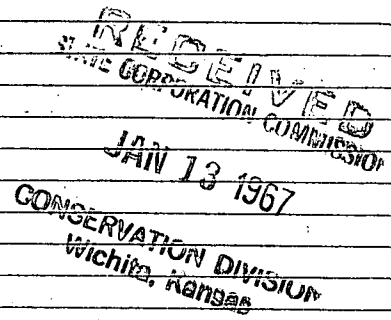 RECEIVED
STATE CORPORATION COMMISSION
JAN 13 1967
CONSERVATION DIVISION
Wichita, Kansas